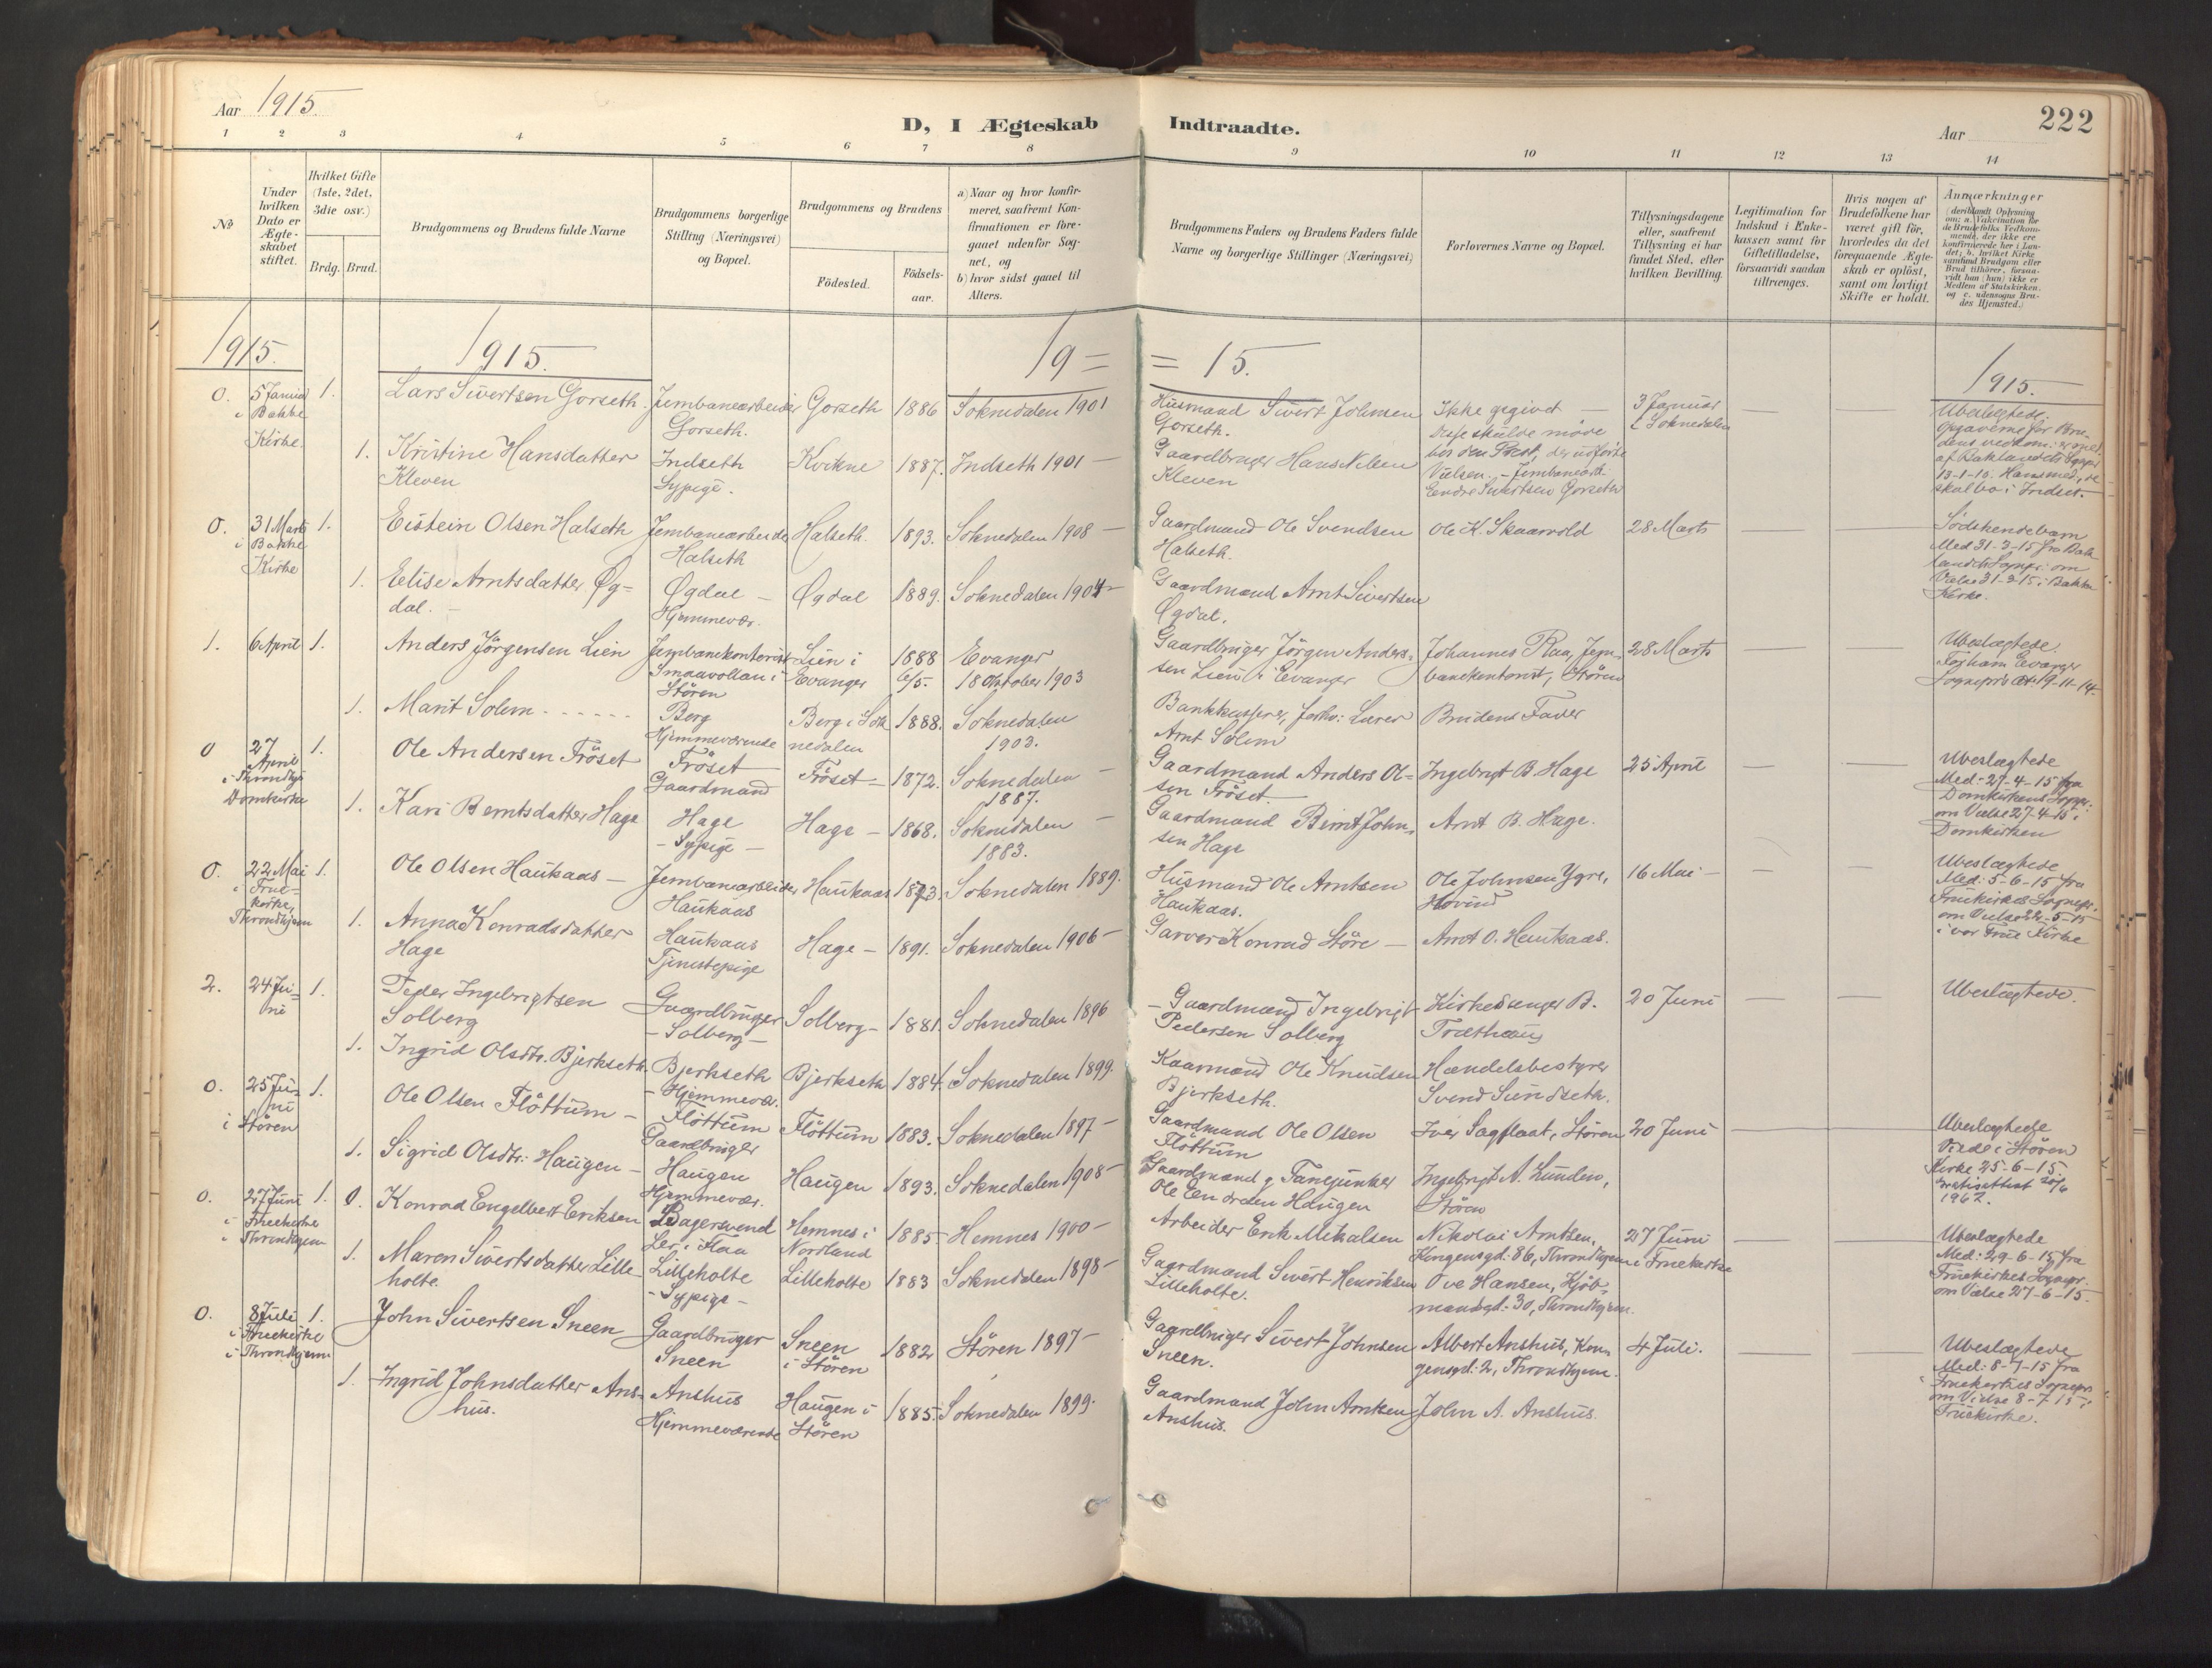 Aar 1915.
D, I Ægteskab Indtraadte.
Aar
222
1 2 3 4 5 6 7 8 9 10 11 12 13 14
No
Under hvilken Dato er Ægteskabet stiftet.
Hvilket Gifte (1ste, 2det, 3die osv.)
Brdg. Brud.
Brudgommens og Brudens fulde Navne
Brudgommens borgerlige Stilling (Næringsvei) og Bopæl.
Brudgommens og Brudens
Födested.
Födsels-aar.
a) Naar og hvor konfirmeret, saafremt Konfirmationen er foregaaet udenfor Sognet, og
b) hvor sidst gaaet til Alters.
Brudgommens Faders og Brudens Faders fulde Navne og borgerlige Stillinger (Næringsvei)
Forlovernes Navne og Bopæl.
Tillysningsdagene eller, saafremt Tillysning ei har fundet Sted, efter hvilken Bevilling.
Legitimation for Indskud i Enkekassen samt for Giftetilladelse, forsaavidt saadan tiltrænges.
Hvis nogen af Brudefolkene har været gift før, hvorledes da det foregaaende Ægteskab er oplöst, samt om lovligt Skifte er holdt.
Anmærkninger
(deriblandt Oplysning om: a. Vakcination for de Brudefolks Vedkommende, der ikke ere konfirmerede her i Landet; b. hvilket Kirkesamfund Brudgom eller Brud tilhörer, forsaavidt han (hun) ikke er Medlem af Statskirken, og c. udensogns Brudes Hjemsted.)
1915. 1915. 19 = = 15. 1915.
0. 5 Januar i Bakke Kirke. 1. Lars Sivertsen Gorseth. Jernbanearbeider Gorseth. Gorseth 1886 Soknedalen 1901 Husmand Sivert Johnsen Gorseth. Ikke opgivet — Disse skulde møde hos den Prest, der udførte Vielsen. – Jernbanearb. Endre Sivertsen Gorseth 3 Januar i Soknedalen — Ubeslægtede. Opgaverne for Brudens vedkom: er opst. af Baklandets Sognepr 13-1-15.
1. Kristine Hansdatter Kleven Indseth Sypige. Kvikne 1887. Indseth 1901 — Gaardbruger Hans Nilsen Kleven skal bo i Indset.
0. 31 Marts i Bakke Kirke 1. Eistein Olsen Halseth Jernbanearbeider Halseth Halseth. 1893. Soknedalen 1908 — Gaardmand Ole Svendsen Halseth. Ole K. Skaarvold 28 Marts — — Södskendebarn Med 31-3-15 fra Baklandets Sognepr. om Vielse 31-3-15 i Bakke Kirke.
1. Eelise Arntsdatter Øgdal. — Øgdal — Hjemmevær. Øgdal 1889. Soknedalen 1904 — Gaardmand Arnt Sivertsen Øgdal.
1. 6 April 1. Anders Jörgensen Lien Jernbanekontorist Smaavollan i Stören Lien i Evanger 1888 6/5. Evanger 18 Oktober 1903 Gaardbruger Jörgen Andersen Lien i Evanger Johannes Raa, Jernbanekontorist, Stören 28 Marts Ubeslægtede. For ham Evanger Sognepr's att. 19-11-14.
1. Marit Solem - - - - - - Berg Hjemmeværende Berg i Soknedalen 1888. Soknedalen 1903. Bankkasserer, forhv: Lærer Arnt Solem Brudens Fader
0 27 April i Throndhjs Domkirke 1. Ole Andersen Fröset Fröset Gaardmand Fröset — 1872. Soknedalen 1887. — Gaardmand Anders Olsen Fröset. Ingebrigt B. Hage 25 April — — Ubeslægtede Med: 27-4-15 fra Domkirkens Sognepr: om Vielse 27-4-15 i Domkirken
1. Kari Berntsdatter Hage Hage – Sypige — Hage — 1868. Soknedalen 1883. — Gaardmand Bernt Johnsen Hage Arnt B. Hage.
0. 22 Mai i Fruekirke, Throndhjem 1. Ole Olsen Haukaas — Jernbanearbeider Haukaas Haukaas 1873. Soknedalen 1889. Husmand Ole Arntsen Haukaas. Ole Johnsen Ygre, Hovind 16 Mai — — — Ubeslægtede Med: 5-6-15 fra Fruekirkes Sognepr. om Vielse 22-5-15 i vor Frue Kirke
1. Anna Konradsdatter Hage Haukaas Tjenestepige Hage — 1891. Soknedalen 1906 — Garver Konrad Støre — Arnt O. Haukaas.
2. 24 Juni 1. Peder Ingebrigtsen Solberg Gaardbruger – Solberg — Solberg — 1881. Soknedalen 1896 – Gaardmand Ingebrigt Pedersen Solberg Kirkesanger B. Træthaug 20 Juni — — Ubeslægtede.
1. Ingrid Olsdtr. Bjerkseth. Bjerkseth – Hjemmevær. Bjerkseth 1884. Soknedalen 1899. Kaarmand Ole Knudsen Bjerkseth. Handelsbestyrer Svend Sundseth.
0. 25 Juni i Stören 1. Ole Olsen Flöttum — Flöttum Gaardbruger Flöttum 1883. Soknedalen 1897 — Gaardmand Ole Olsen Flöttum Iver Sagflaat, Stören 20 Juni — — Ubeslægtede Viede i Stören Kirke 25-6-15. 1962.
1. Sigrid Olsdtr: Haugen — Haugen Hjemmevær. Haugen 1893. Soknedalen 1908 — Gaardmand g Fanejunker Ole Haugen Ingebrigt A. Lunden, Stören
0. 27 Juni i Fruekirke i Throndhjem 1. 0. Konrad Engelbert Eriksen Bagersvend Ler i Flaa Hemnes i Nordland 1885 Hemnes 1900 — Arbeider Erik Mikalsen Nikolai Arntsen, Kongensgd: 86, Throndhjem 27 Juni i Fruekirke — — Ubeslægtede Med: 29-6-15 fra Fruekirkes Sognepr. om Vielse 27-6-15.
1. Maren Sivertsdatter Lilleholte. Lilleholte – Sypige — Lilleholte 1883 Soknedalen 1898 — Gaardmand Sivert Henriksen Lilleholte. Ove Hansen, Kjöbmandsgd: 30, Throndhjem.
0. 8 Juli i Fruekirke i Throndhjem 1. John Sivertsen Sneen Gaardbruger Sneen Sneen i Stören 1882 Stören 1897 — Gaardbruger Sivert Johnsen Sneen. Albert Anshus, Kongensgd: 2, Throndhjem. 4 Juli. — — Ubeslægtede Med: 8-7-15 fra Fruekirkes Sognepr. om Vielse 8-7-15 i Fruekirke.
1. Ingrid Johnsdatter Anshus. Anshus Hjemmeværende Haugen i Stören 1885. Soknedalen 1899. Gaardmand John Arntsen Anshus. John A. Anshus.